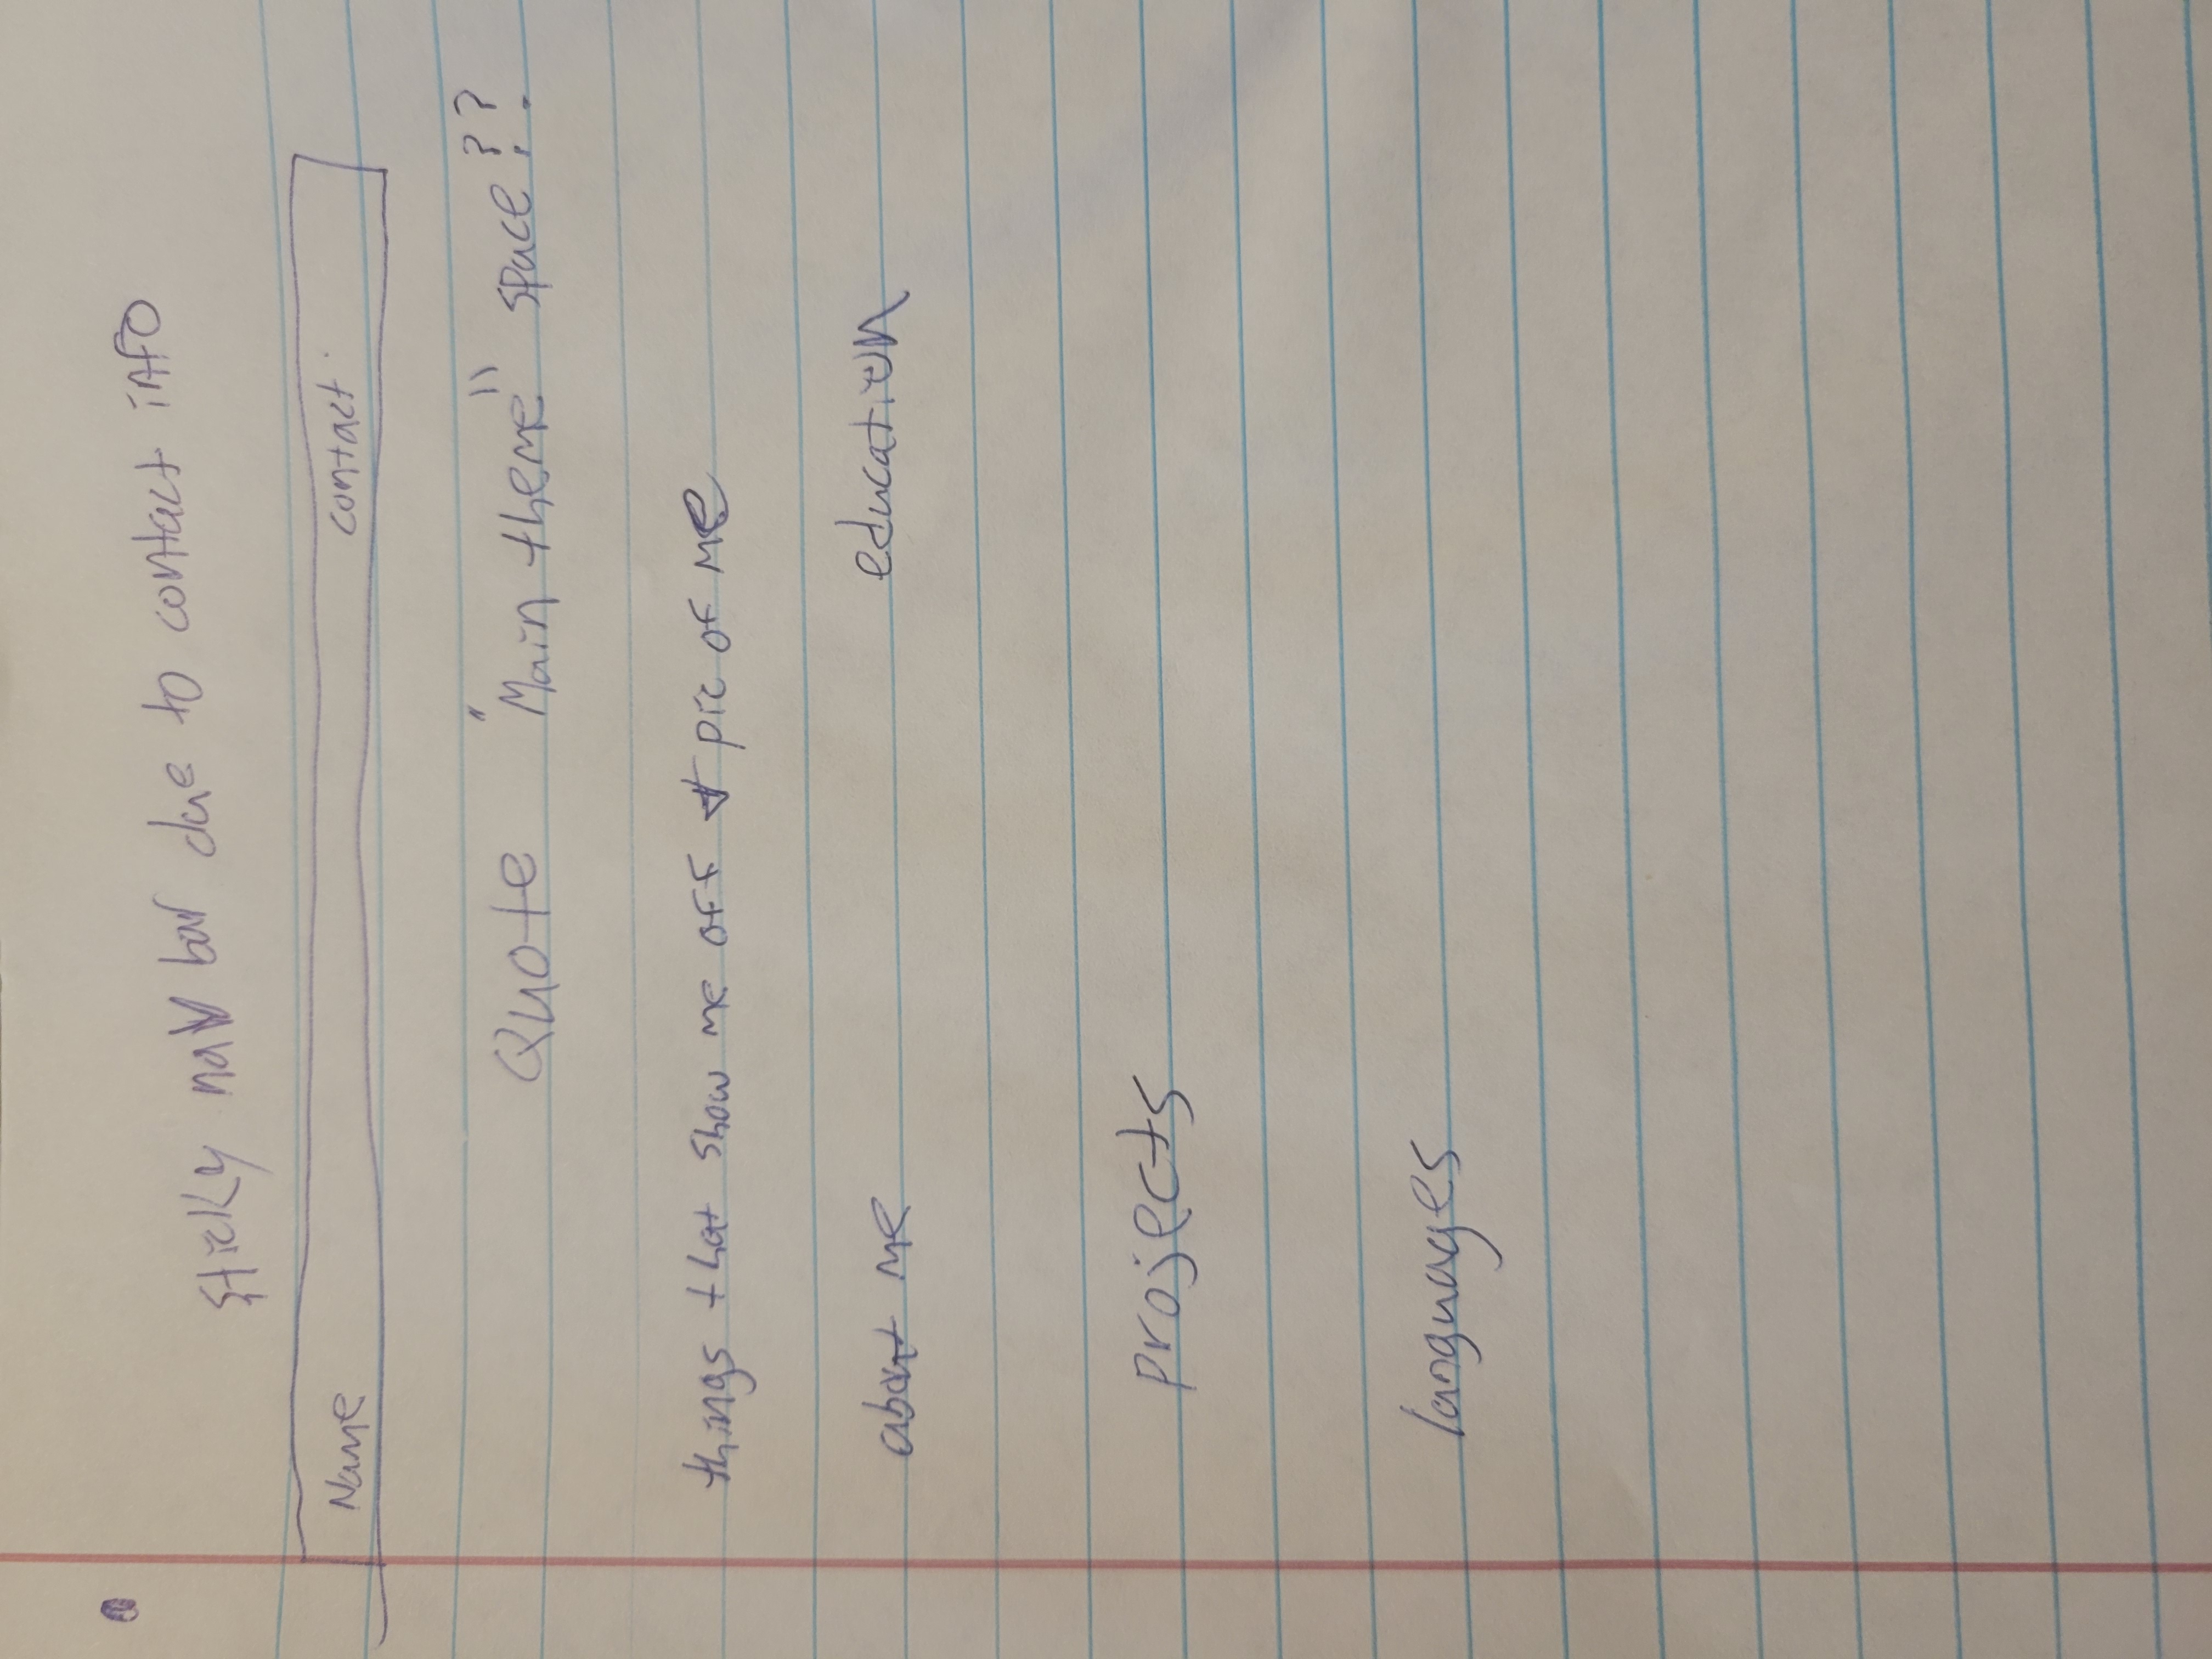 sticky nav bar due to contact info
Name contact
Quote "Main theme" space??
things that show me off & pic of me
about me education
projects
languages